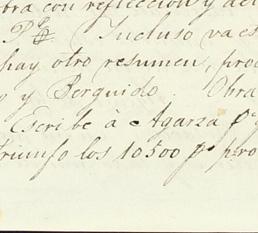 obra con refleccion y
Incluso va es
hay otro resumen, pro
o y Berguido. Obra
Escribe à Agarza pª q
triunfo los 10500 p pro